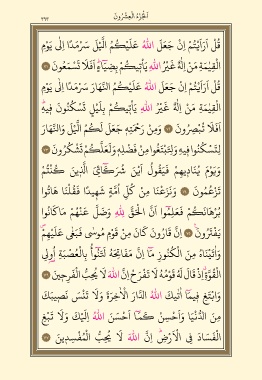 اَلْجُزْءُ الْعِشْرُونَ
٣٩٣
قُلْ اَرَاَيْتُمْ اِنْ جَعَلَ اللّٰهُ عَلَيْكُمُ الَّيْلَ سَرْمَدًا اِلٰى يَوْمِ
الْقِيٰمَةِ مَنْ اِلٰهٌ غَيْرُ اللّٰهِ يَأْتِيكُمْ بِضِيَٓاءٍ اَفَلَا تَسْمَعُونَ ٧١
قُلْ اَرَاَيْتُمْ اِنْ جَعَلَ اللّٰهُ عَلَيْكُمُ النَّهَارَ سَرْمَدًا اِلٰى يَوْمِ
الْقِيٰمَةِ مَنْ اِلٰهٌ غَيْرُ اللّٰهِ يَأْتِيكُمْ بِلَيْلٍ تَسْكُنُونَ فِيهِ
اَفَلَا تُبْصِرُونَ ٧٢ وَمِنْ رَحْمَتِهِ جَعَلَ لَكُمُ الَّيْلَ وَالنَّهَارَ
لِتَسْكُنُوا فِيهِ وَلِتَبْتَغُوا مِنْ فَضْلِهِ وَلَعَلَّكُمْ تَشْكُرُونَ ٧٣
وَيَوْمَ يُنَادِيهِمْ فَيَقُولُ اَيْنَ شُرَكَٓاءِيَ الَّذِينَ كُنْتُمْ
تَزْعُمُونَ ٧٤ وَنَزَعْنَا مِنْ كُلِّ اُمَّةٍ شَهِيدًا فَقُلْنَا هَاتُوا
بُرْهَانَكُمْ فَعَلِمُٓوا اَنَّ الْحَقَّ لِلّٰهِ وَضَلَّ عَنْهُمْ مَا كَانُوا
يَفْتَرُونَ ٧٥ اِنَّ قَارُونَ كَانَ مِنْ قَوْمِ مُوسٰى فَبَغٰى عَلَيْهِمْ
وَاٰتَيْنَاهُ مِنَ الْكُنُوزِ مَٓا اِنَّ مَفَاتِحَهُ لَتَنُٓوأُ بِالْعُصْبَةِ اُولِي
الْقُوَّةِ اِذْ قَالَ لَهُ قَوْمُهُ لَا تَفْرَحْ اِنَّ اللّٰهَ لَا يُحِبُّ الْفَرِحِينَ ٧٦
وَابْتَغِ فِيمَٓا اٰتٰيكَ اللّٰهُ الدَّارَ الْاٰخِرَةَ وَلَا تَنْسَ نَصِيبَكَ
مِنَ الدُّنْيَا وَاَحْسِنْ كَمَٓا اَحْسَنَ اللّٰهُ اِلَيْكَ وَلَا تَبْغِ
الْفَسَادَ فِي الْاَرْضِ اِنَّ اللّٰهَ لَا يُحِبُّ الْمُفْسِدِينَ ٧٧